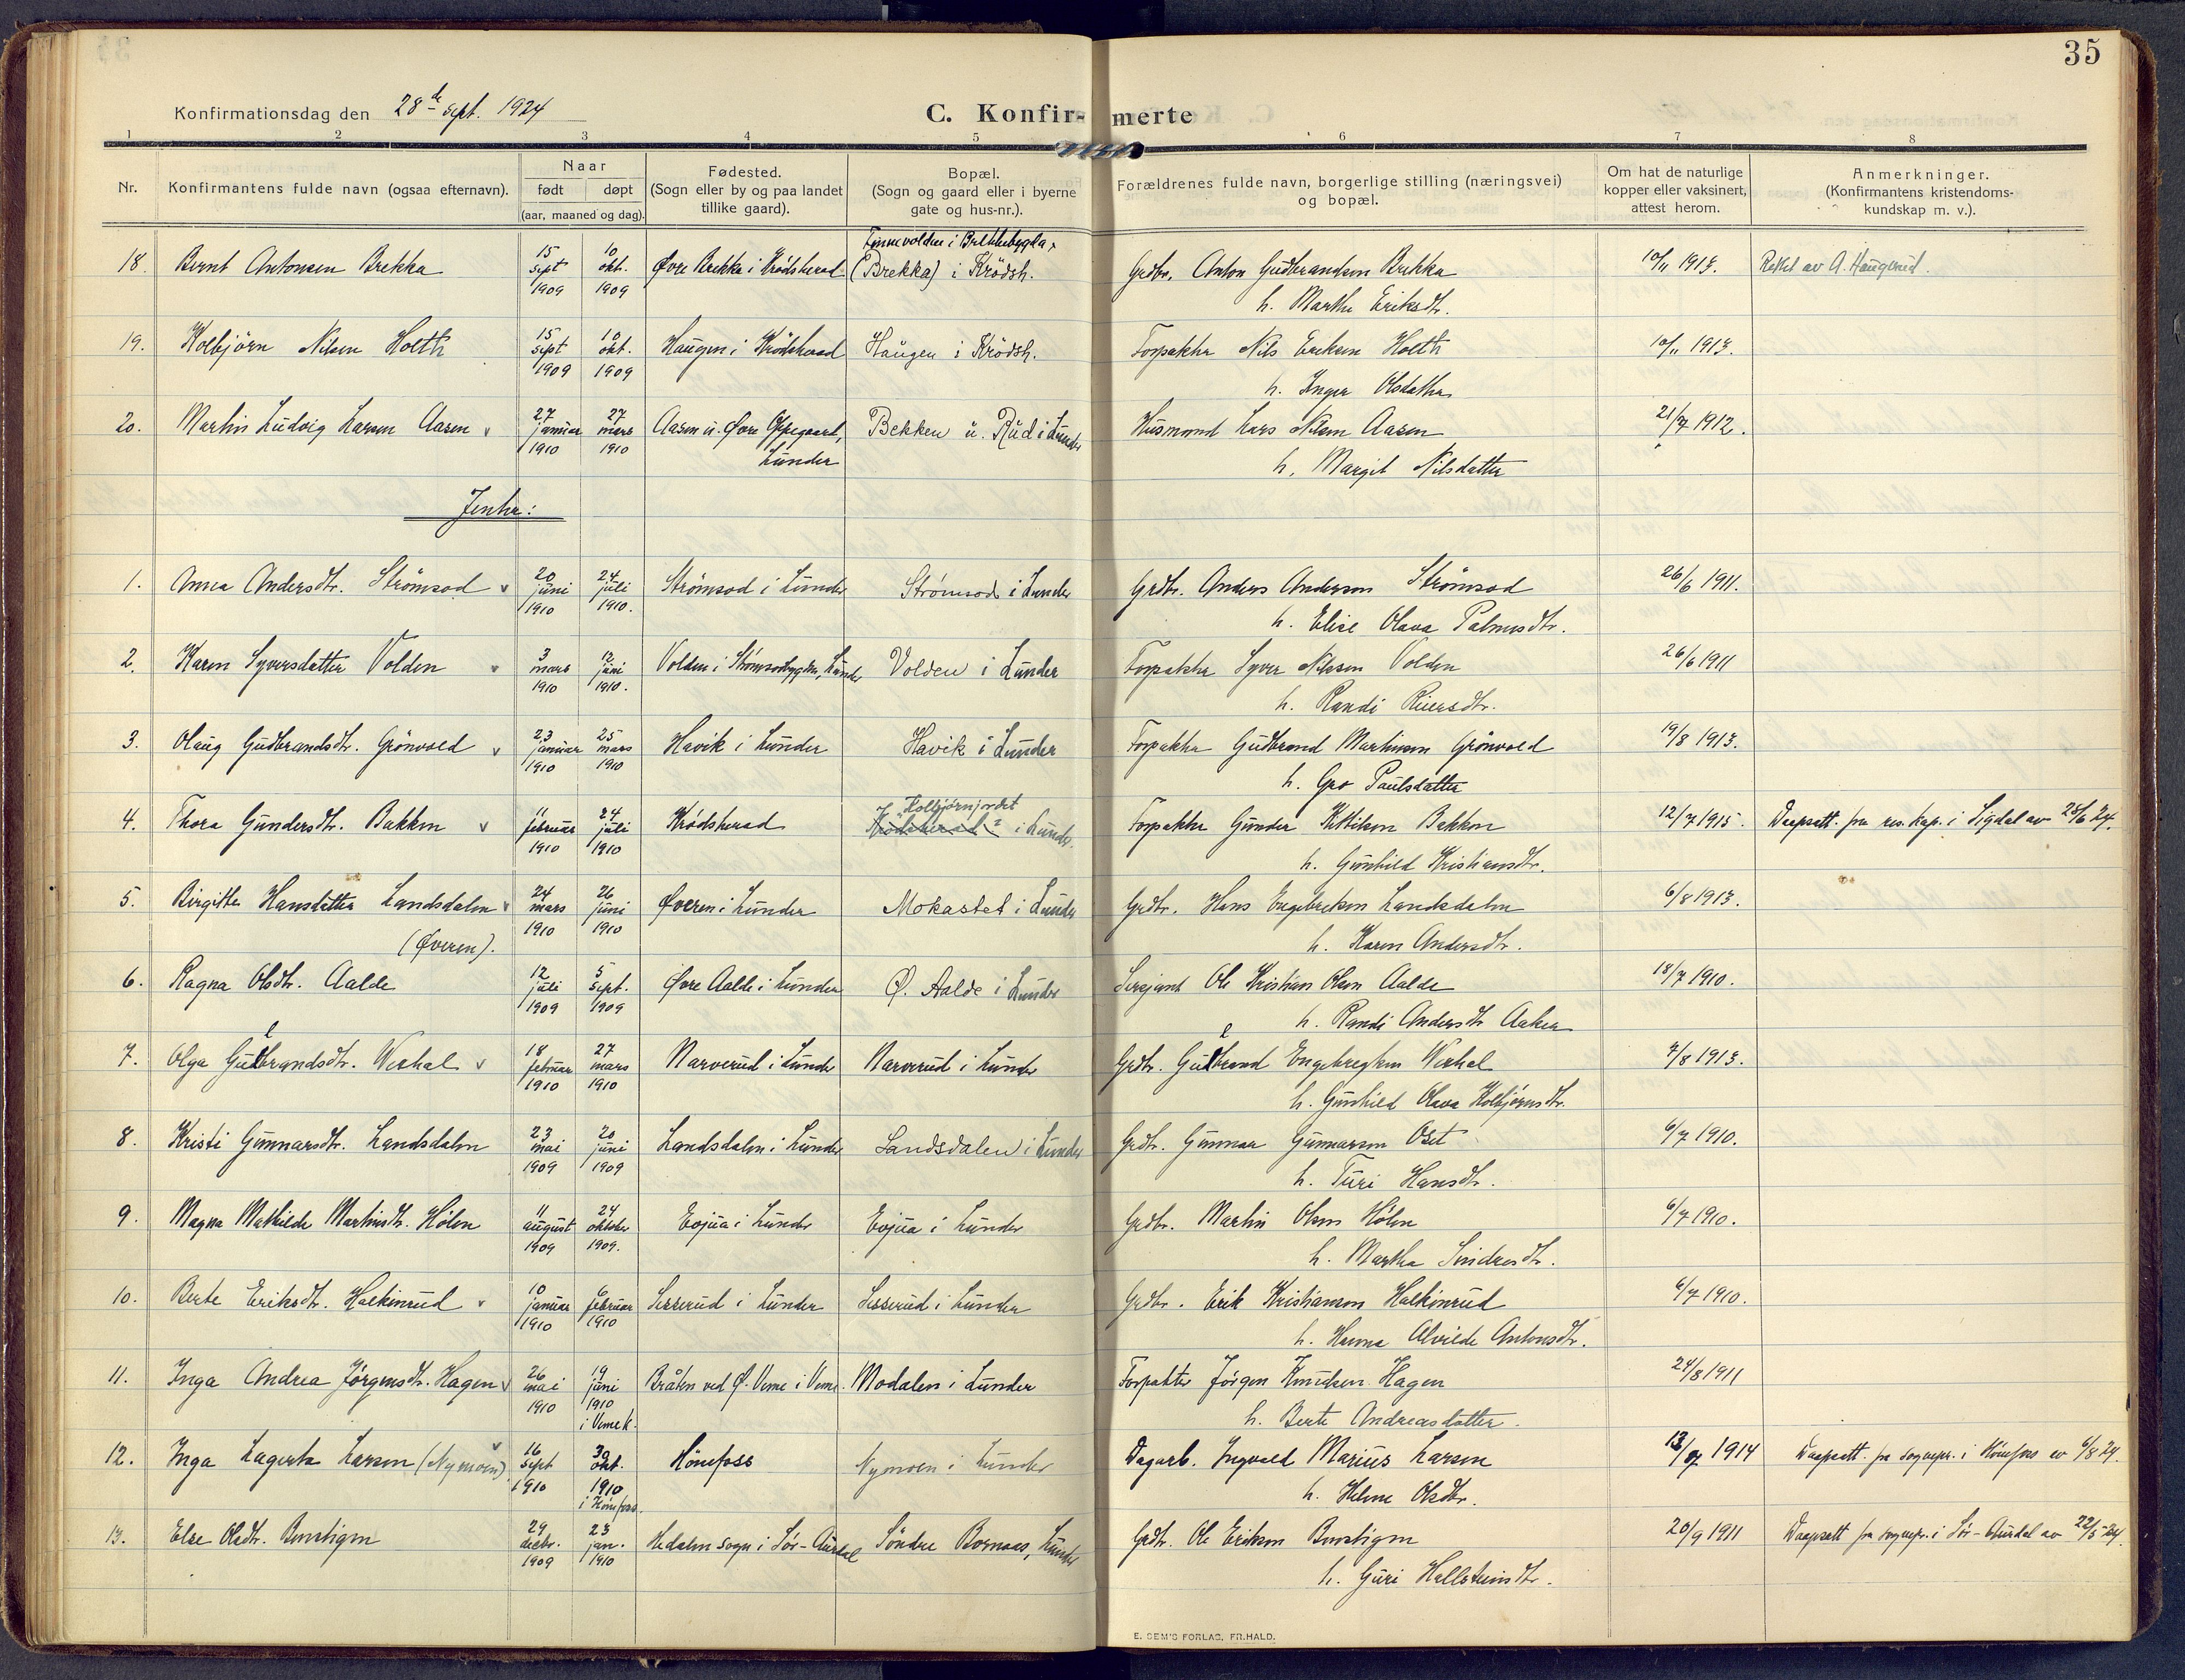 35
Konfirmationsdag den 28de sept. 1924
C. Konfir- merte
1 2 3 4 5 6 7 8
Nr.
Konfirmantens fulde navn (ogsaa efternavn).
Naar
født døpt
(aar, maaned og dag).
Fødested.
(Sogn eller by og paa landet
tillike gaard).
Bopæl.
(Sogn og gaard eller i byerne
gate og hus-nr.).
Forældrenes fulde navn, borgerlige stilling (næringsvei)
og bopæl.
Om hat de naturlige
kopper eller vaksinert,
attest herom.
Anmerkninger.
(Konfirmantens kristendoms-
kundskap m. v.).
18. Bernt Antonsen Brekka 15 sept 1909 10 okt. 1909 Øvre Brekka i Krödsherad (Brekka) i Krödsh. Grdbr. Anton Gudbrandsen Brekka 10/11 1913. av A. Haugerud.
h. Marthe Eriksdtr.
19. Kolbjörn Nilsen Holth 15 sept 1909 10 okt. 1909 Haugen i Krödsherad Haugen i Krödsh. Forpakter Nils Eriksen Holth 10/11 1913.
h. Inger Olsdatter
20. Martin Ludvig Larsen Aasen v 27 januar 1910 27 mars 1910 Aasen u. Øvre Oppegaard, Lunder Bekken u. Rud i Lunder Husmand Lars Nilsen Aasen 21/7 1912.
h. Margit Nilsdatter
Jenter:
1. Anna Andersdtr. Strömsod v 20 juni 1910 24 juli 1910. Strömsod i Lunder Strømsod i Lunder Grdbr. Anders Andersen Strömsod 26/6 1911.
h. Elise Olava Palmesdtr.
2. Karen Syversdatter Volden v 3 mars 1910 12 juni 1910. Volden i Strömsodbygden, Lunder Volden i Lunder Forpakter Syver Nilsen Volden 26/6 1911
h. Randi Reiersdtr.
3. Olaug Gudbrandsdtr. Grönvold v 23 januar 1910 25 mars 1910 Havik i Lunder Havik i Lunder Forpakter Gudbrand Martinsen Grönvold 19/8 1913.
h. Gro Paulsdatter
4. Thora Gundersdtr. Bakken v 11 februar 1910 24 juli 1910 Krödsherad Kolbjørnjordet Krödsherad? i Lunder. Forpakter Gunder Kittilsen Bakken 12/7 1915. Daapsatt. fra res. kap. i Sigdal av 25/6 24.
h. Gunhild Kristiansdtr.
5. Birgitte Hansdatter Landsdalen v 24 mars 1910 26 juni 1910 Øveren i Lunder Mokastet i Lunder Grdbr. Hans Engebretsen Landsdalen 6/8 1913.
(Øveren). h. Karen Andersdtr.
6. Ragna Olsdtr. Aalde 12 juli 1909 5 sept. 1909 Øvre Aalde i Lunder Ø. Aalde i Lunder Sersjant Ole Kristian Olsen Aalde 18/7 1910.
h. Randi Andersdtr Aaker
7. Olga Gulbrandsdtr. Werhal v 18 februar 1910 27 mars 1910 Narverud i Lunder Narverud i Lunder Grdbr. Gulbrand Engebregtsen Werhal 7/8 1913.
h. Gunhild Olava Kolbjørnsdtr.
8. Kristi Gunnarsdtr. Landsdalen 23 mai 1909 20 juni 1909 Landsdalen i Lunder Landsdalen i Lunder Grdbr. Gunnar Gunnarsen Oset 6/7 1910.
h. Turi Hansdtr.
9. Magna Mathilde Martinsdtr. Hölen 11 august 1909 24 oktober 1909. Evjua i Lunder Evjua i Lunder Grdbr. Martin Olsen Hölen 6/7 1910.
h. Martha Sindresdtr.
10. Berte Eriksdtr. Halkinrud v 10 januar 1910 6 februar 1910 Sesserud i Lunder Sesserud i Lunder Grdbr. Erik Kristiansen Halkinrud 6/7 1910.
h. Hanna Alvilde Antonsdtr.
11. Inga Andrea Jørgensdtr. Hagen v 26 mai 1910 19 juni 1910 i Veme k. Bråten ved Ø. Veme i Veme. Modalen i Lunder Forpakter Jörgen Knudsen Hagen 24/8 1911
h. Berte Andreasdatter.
12. Inga Lagerta Larsen (Nymoen) v 16 sept 1910 30 okt. 1910 i Hönefoss. Hönefoss Nymoen i Lunder Dagarb. Ingvald Marius Larsen 13/7 1914 Daapsatt. fra sognepr. i Hönefoss av 6/8 24.
h. Helene Olsdtr.
13. Else Olsdtr. Buvstigen 29 decbr. 1909 23 jan. 1910 Hedalen sogn i Sör-Aurdal Söndre Bornaas, Lunder Grdbr. Ole Eriksen Buvstigen 20/9 1911 Daapsatt fra sognepr. i Sör-Aurdal av 22/5 24.
h. Guri Hallsteinsdtr.
E. SEM'S FORLAG, FR.HALD.